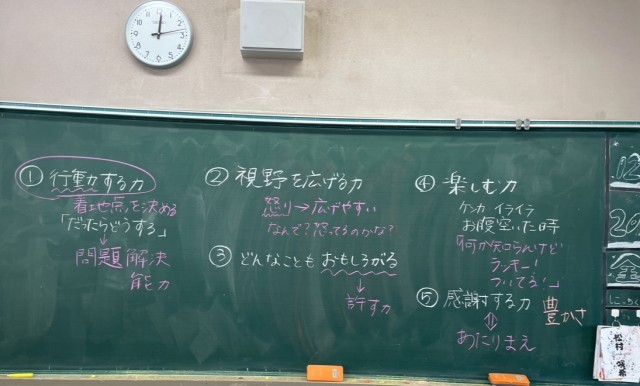 ① 行動する力
着地点を決める
「だったらどうする」
↓
問題解決
能力
② 視野を広げる力
怒り→広げやすい
なんで?怒ってるのかな?
③ どんなことも おもしろがる
↓
許す力
④ 楽しむ力
ケンカ イライラ
お腹空いた時
「何か知らんけど
ラッキー!
ついてる!」
⑤ 感謝する力
豊かさ
⇕
あたりまえ
12
20
金
にっちょく
松村